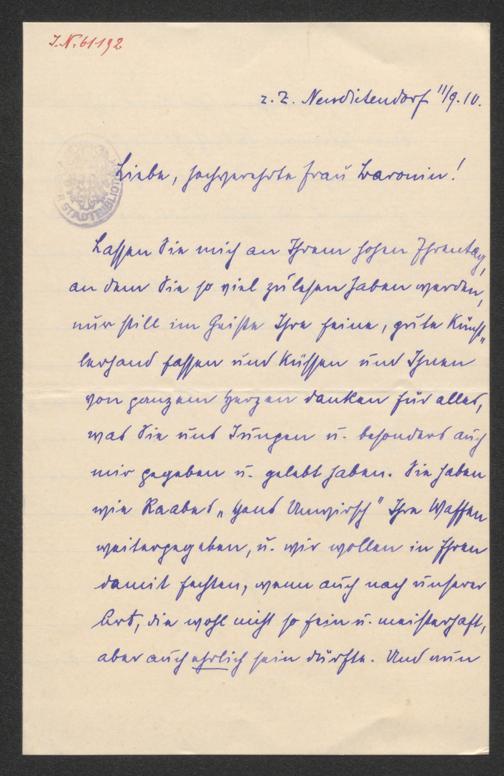 J.N. 61192
z. Z. Neudietendorf 11/9. 10.
STADTBIBLIOT
Liebe, hochverehrte Frau Baronin!
Lassen Sie mich an Ihrem hohen Ehrentag,
an dem Sie so viel zu lesen haben werden,
nur still im Geiste Ihre feine, gute Künst„
lerhand fassen und küssen und Ihnen
von ganzem Herzen danken für alles,
was Sie uns Jungen u. besonders auch
mir gegeben u. gelebt haben. Sie haben
wie Raabes „Hans Unwirsch" Ihre Waffen
weitergegeben, u. wir wollen in Ehren
damit fechten, wenn auch nach unserer
Art, die wohl nicht so fein u. meisterhaft,
aber auch ehrlich sein dürfte. Und nun